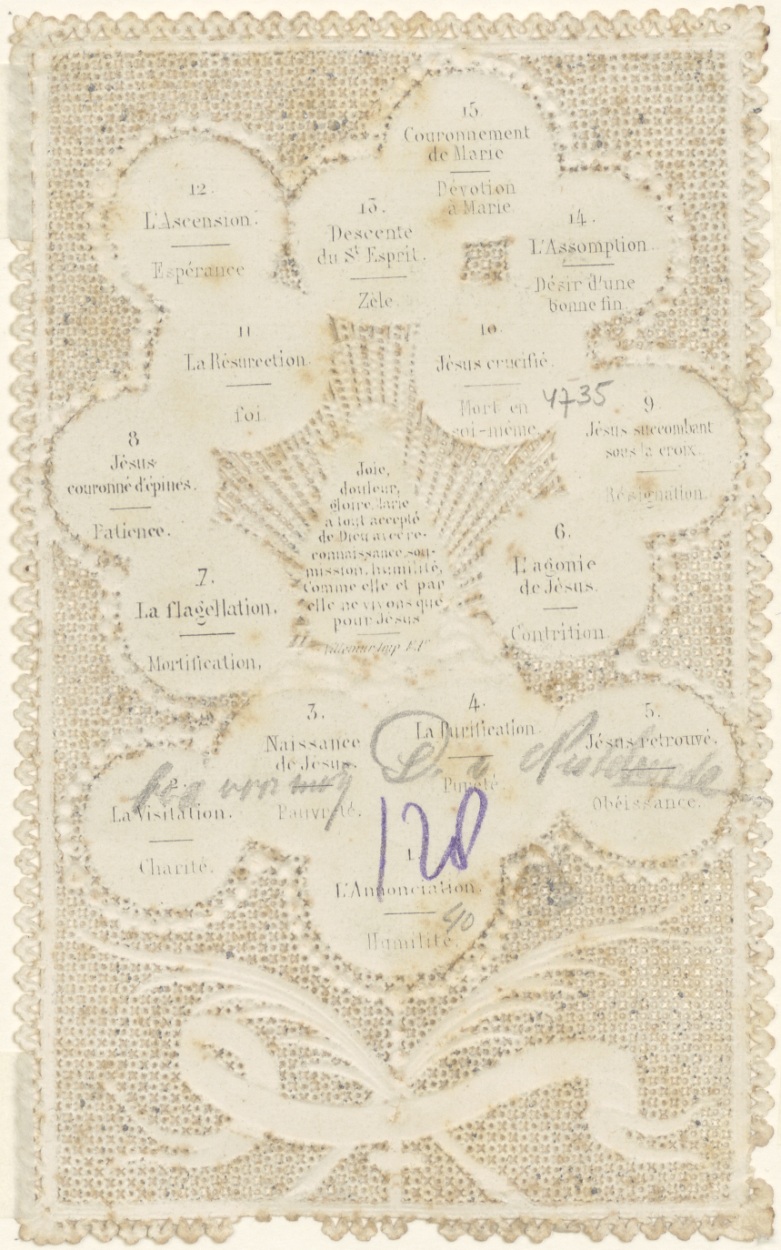 15.
Couronnement
de Marie
Dévotion
à Marie
12.
L'Ascension.
Espérance
13.
Descente
du St Esprit.
Zèle.
14.
L'Assomption.
Désir d'une
bonne fin.
11
La Résurection.
foi
10
Jésus crucifié.
Mort en
soi-même.
4735
9
Jésus succombant
sous la croix.
Résignation.
8
Jésus
couronné d'épines.
Patience.
Joie,
douleur,
gloire, Marie
a tout accepté
de Dieu avec re-
connaissance, sou-
mission, humilité,
Comme elle et par
elle ne vivons que
pour Jésus
6.
L'agonie
de Jésus.
Contrition.
7.
La flagellation.
Mortification.
3.
Naissance
de Jésus.
Pauvreté.
4.
La Purification
Pureté
5.
Jésus retrouvé.
Obéissance.
2.
La Visitation.
Charité.
128
1.
L'Annonciation.
40
Humilité.